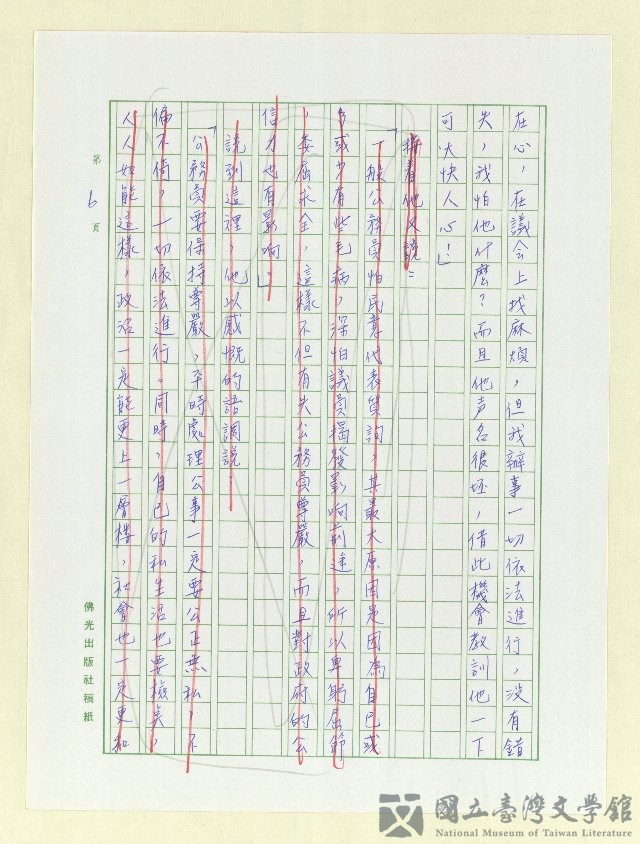 在心，在議会上找麻煩，但我辦事一切依法進行，没有錯
失，我怕他什麼？而且他声名很坯，借此機會教訓他一下
可大快人心！」
接着他又説：
「一般公務員怕民意代表質詢，其最大原因是因為自己或
多或少有些毛病，深怕議員揭發影响前途，所以卑躬屈節
，委屈求全，這樣不但有失公務員尊嚴，而且對政府的公
信力也有影响」
説到這裡，他以感慨的語調説：
「公務員要保持尊嚴，平時處理公事一定要公正無私，不
偏不倚，一切依法進行。同時，自己的私生活也要檢点，
人人如能這樣，政治一定能更上一層樓，社會也一定更和
第 6 頁
佛光出版社稿紙
國立臺灣文學館
National Museum of Taiwan Literature